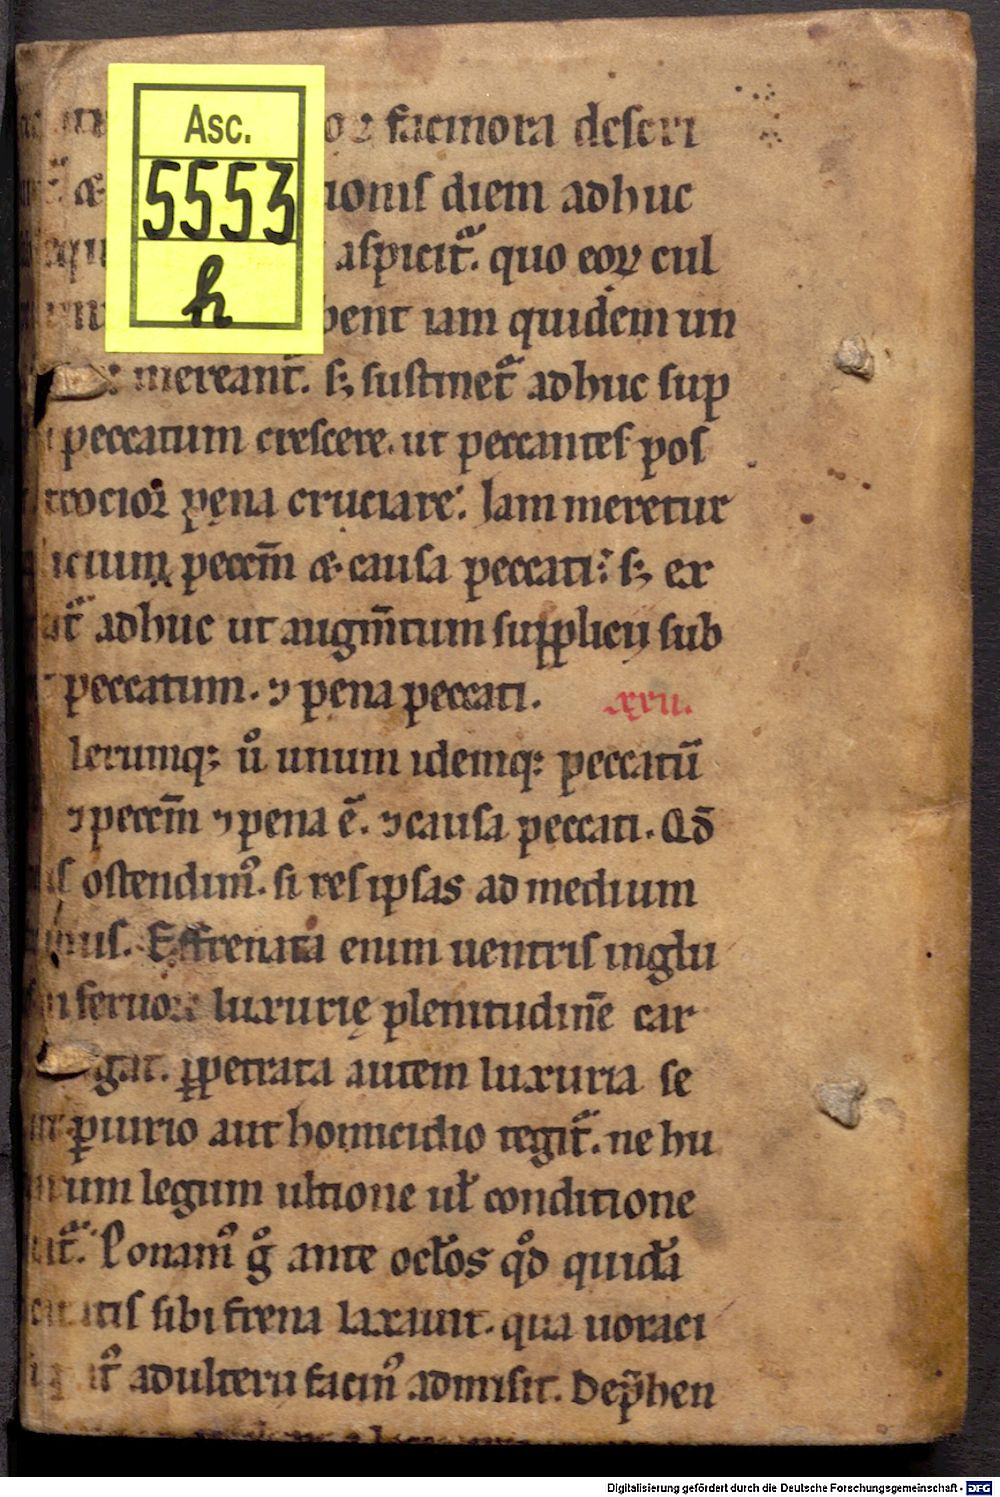 Asc.
5553
h
facinora deseri
⁊ ionis diem adhuc
aspicit᷑. quo eoꝝ cul
bent iam quidem un
mereant᷑. sꝫ sustinet᷑ adhuc sup
peccatum crescere. ut peccantes pos
trocior pęna cruciare. Jam meretur
icium peccm̄ ⁊ causa peccati: sꝫ ex
adhuc ut augm̄tum supplicij sub
peccatum. ⁊ pena peccati. xxii.
lerumqꝫ ů unum idemqꝫ peccatū
⁊ peccm̄ ⁊ pena ē. ⁊ causa peccati. Qđ
ostendimꝰ. si res ipsas ad medium
mus. Effrenata enim uentris inglu
in feruore luxurię plenitudinē car
gat. ꝑpetrata autem luxuria se
ꝑiurio aut homicidio tegit᷑. ne hu
rum legum ultione ul̓ conditione
Ponamꝰ g̊ ante ocl̓os qđ quidā
itis sibi frena laxauit. qua uoraci
adulterii facinꝰ admisit. Dep̄hen
Digitalisierung gefördert durch die Deutsche Forschungsgemeinschaft - DFG